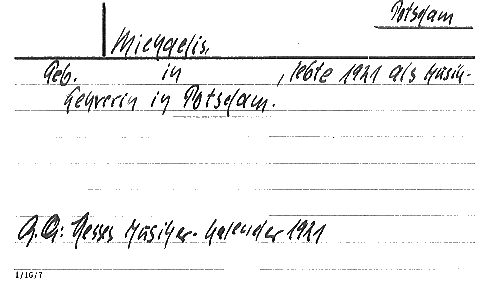 Potsdam
Michaelis.
Geb. in , lebte 1921 als Musik-
Lehrerin in Potsdam.
A.Q: Hesses Musiker-Kalender 1921
1/16/7